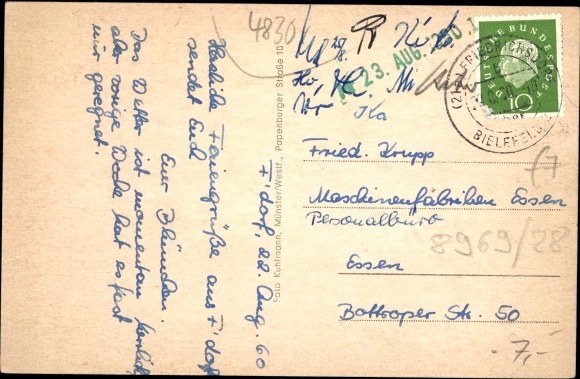 F'dorf, 22. Aug. 60
Herzliche Feriengrüße aus F'dorf
sendet Euch
Eur Blümchen.
Das Wetter ist momentan herrlich
aber vorige Woche hat es fast
nur geregnet.
4830
Foto Kuhlmann, Münster/Westf., Papenburger Straße 10
23. AUG. 1960
DEUTSCHE BUNDESPOST
10
BIELEFELD
Fried. Krupp
Maschinenfabriken Essen
Personalbüro
Essen
Bottroper Str. 50
f7
8969/28
-7,-